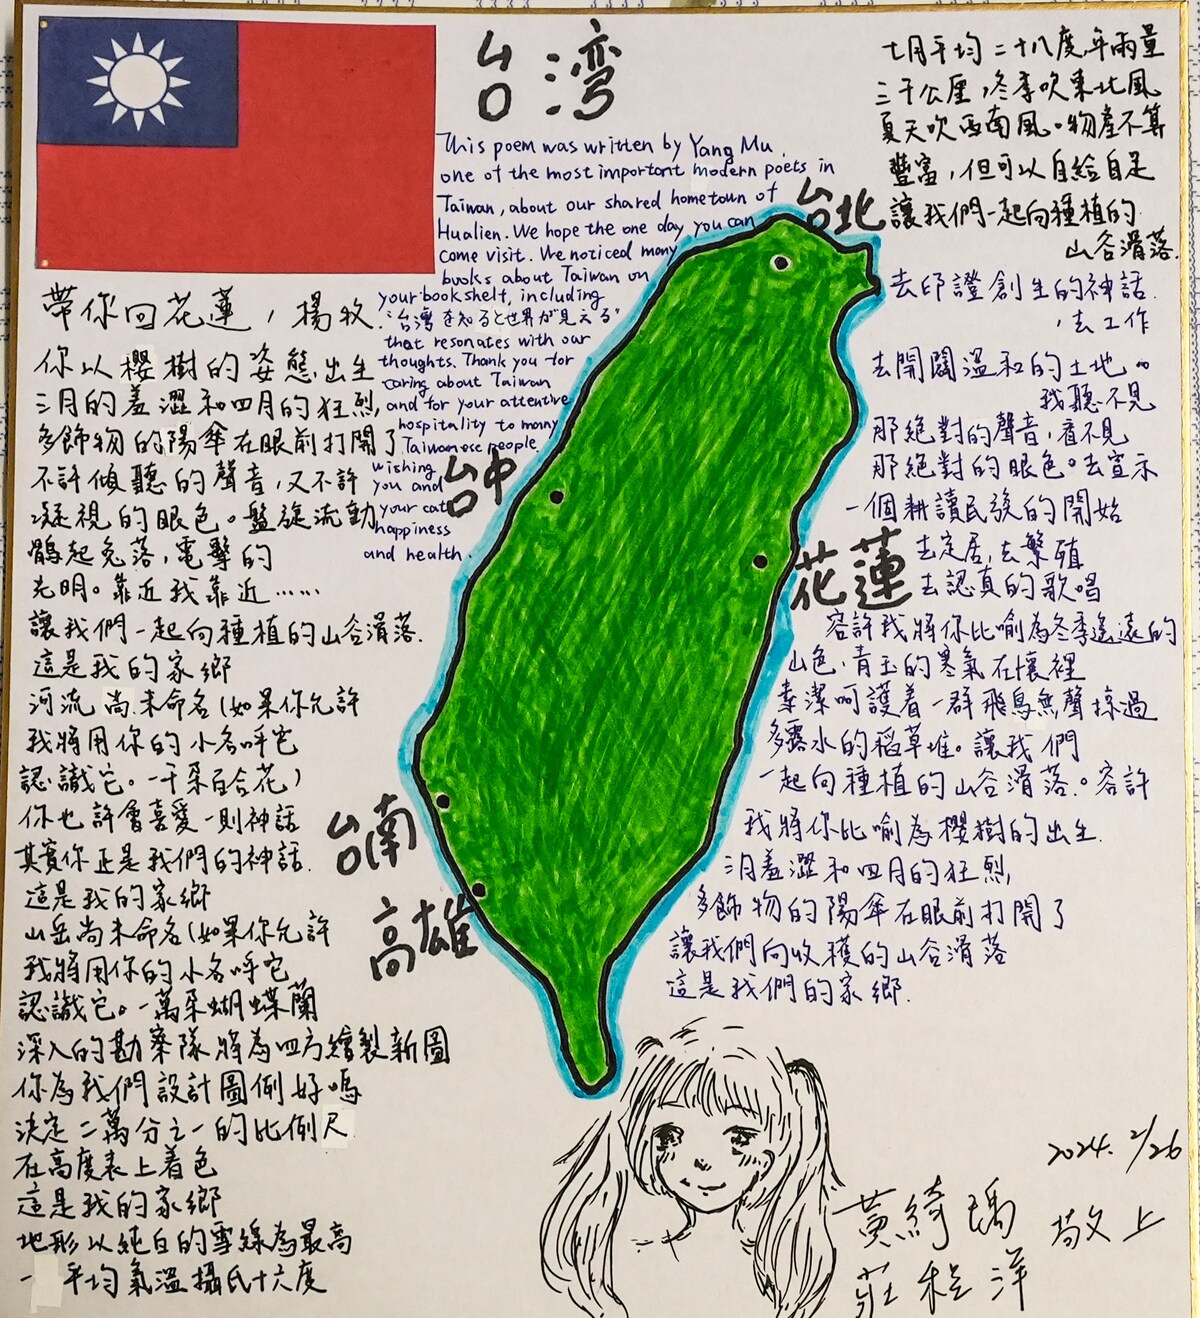 台灣
This poem was written by Yang Mu,
one of the most important modern poets in
Taiwan, about our shared hometown of
Hualien. We hope the one day you can
come visit. We noticed many
books about Taiwan on
your bookshelf, including
"台湾を知ると世界が見える"
that resonates with our
thoughts. Thank you for
caring about Taiwan
and for your attentive
hospitality to many
Taiwanese people.
wishing
you and
your cat
happiness
and health.
帶你回花蓮，楊牧.
你以櫻樹的姿態出生
三月的羞澀和四月的狂烈,
多飾物的陽傘在眼前打開了
不許傾聽的聲音,又不許
凝視的眼色。盤旋流動
鶻起兔落,電擊的
光明。靠近我靠近……
讓我們一起向種植的山谷滑落.
這是我的家鄉
河流尚未命名(如果你允許
我將用你的小名呼它
認識它。一千朵百合花)
你也許會喜愛一則神話
其實你正是我們的神話.
這是我的家鄉
山岳尚未命名(如果你允許
我將用你的小名呼它
認識它。一萬朵蝴蝶蘭
深入的勘察隊將為四方繪製新圖
你為我們設計圖例好嗎
決定二萬分之一的比例尺
在高度表上着色
這是我的家鄉
地形以純白的雪線為最高
一 平均氣溫攝氏十六度
七月平均二十八度,年雨量
三千公厘,冬季吹東北風
夏天吹西南風。物產不算
豐富,但可以自給自足
讓我們一起向種植的
山谷滑落.
去印證創生的神話.
,去工作
去開闢溫和的土地。
我聽不見
那絕對的聲音,看不見
那絕對的眼色。去宣示
一個耕讀民族的開始
去定居,去繁殖
去認真的歌唱
容許我將你比喻為冬季遙遠的
山色,青玉的寒氣在懷裡
素潔呵護着一群飛鳥無聲掠過
多露水的稻草堆。讓我們
一起向種植的山谷滑落。容許
我將你比喻為櫻樹的出生.
三月羞澀和四月的狂烈,
多飾物的陽傘在眼前打開了
讓我們向收穫的山谷滑落
這是我們的家鄉.
台北
台中
花蓮
台南
高雄
2024. 2/26
黃綺瑀 敬上
莊程洋